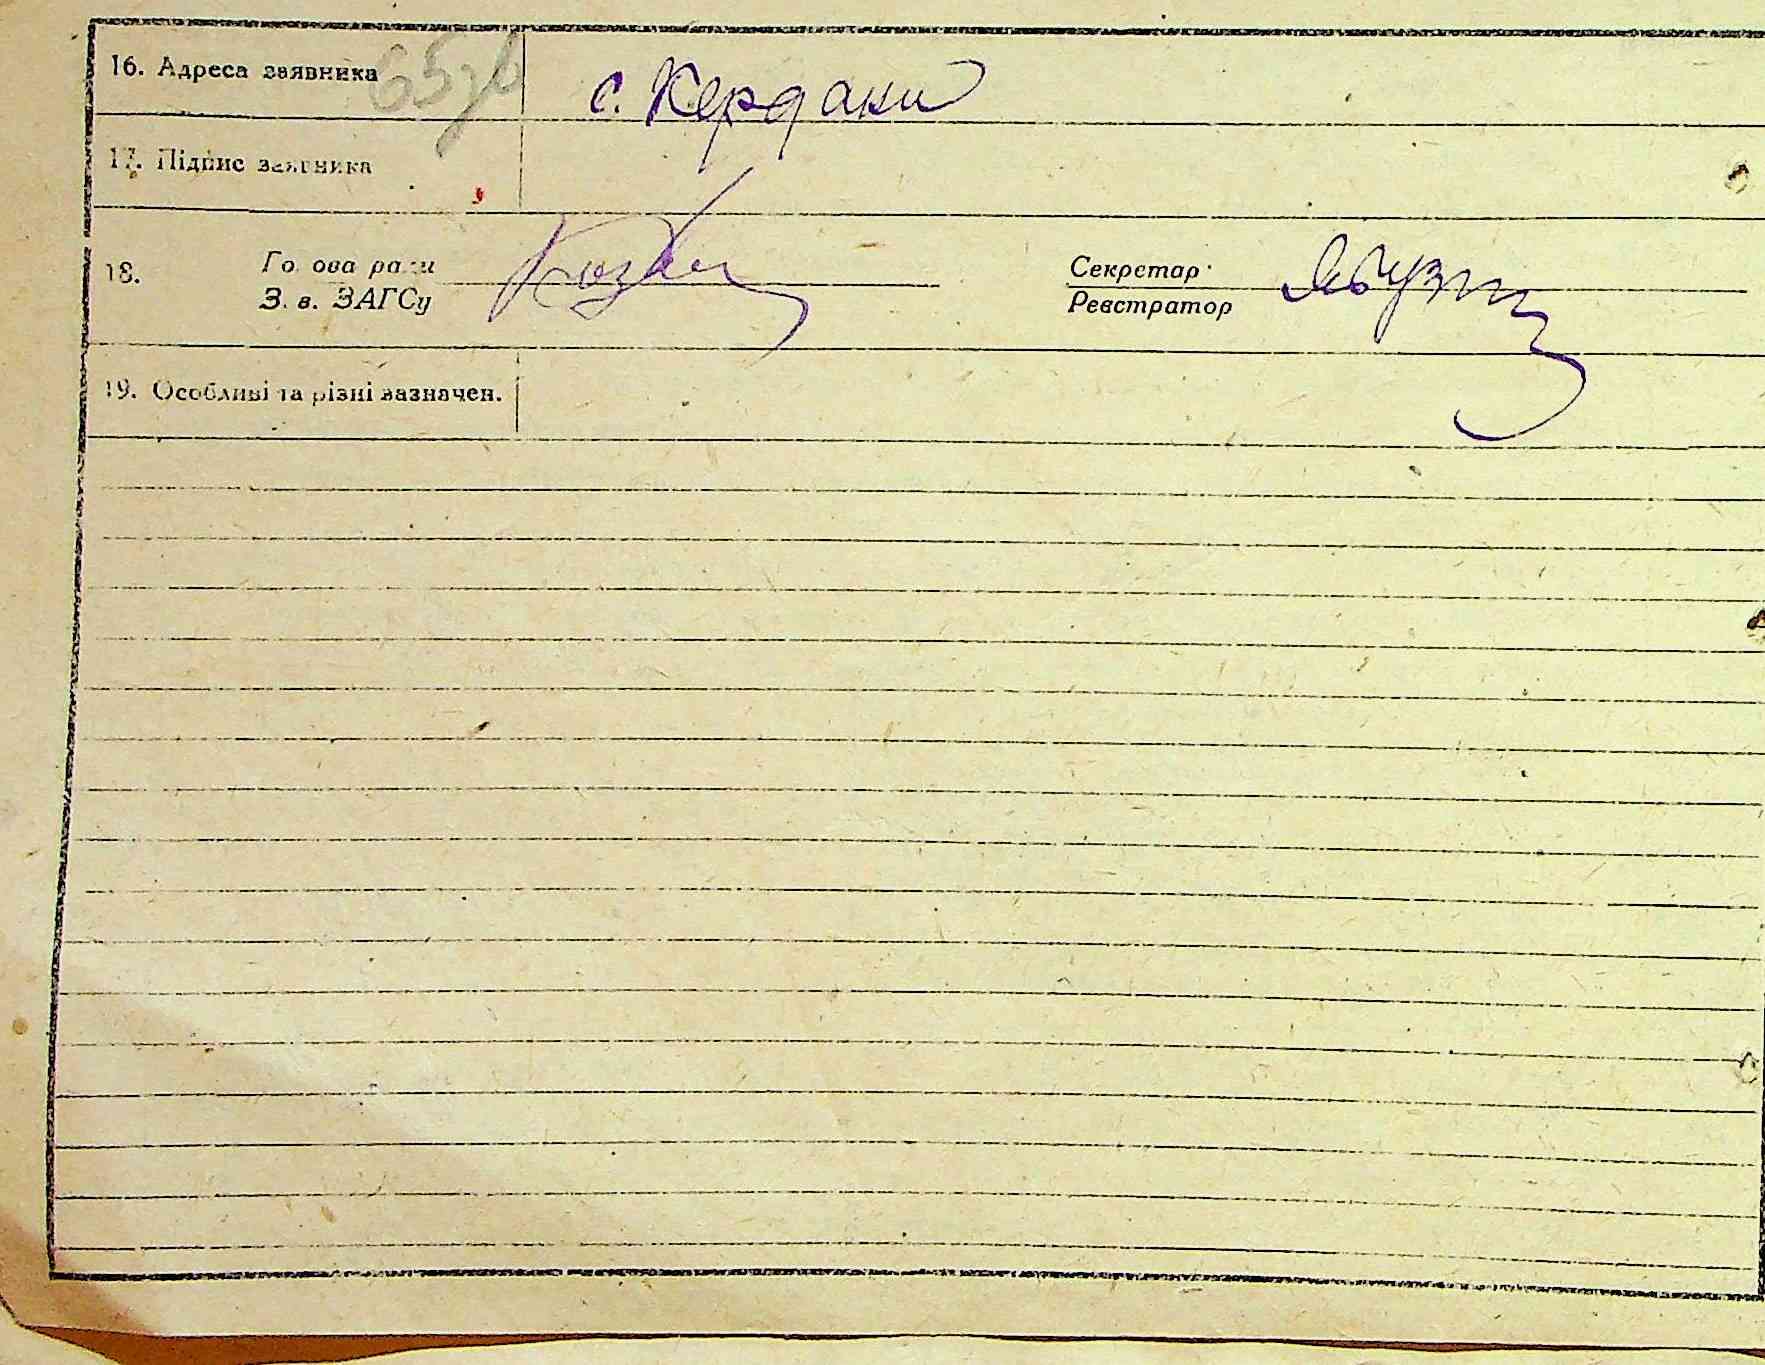 16. Адреса заявника с. Кердани
17. Підпис заявника
18. Голова ради Секретар
З. в. ЗАГСу Реєстратор
19. Особливі та різні зазначен.